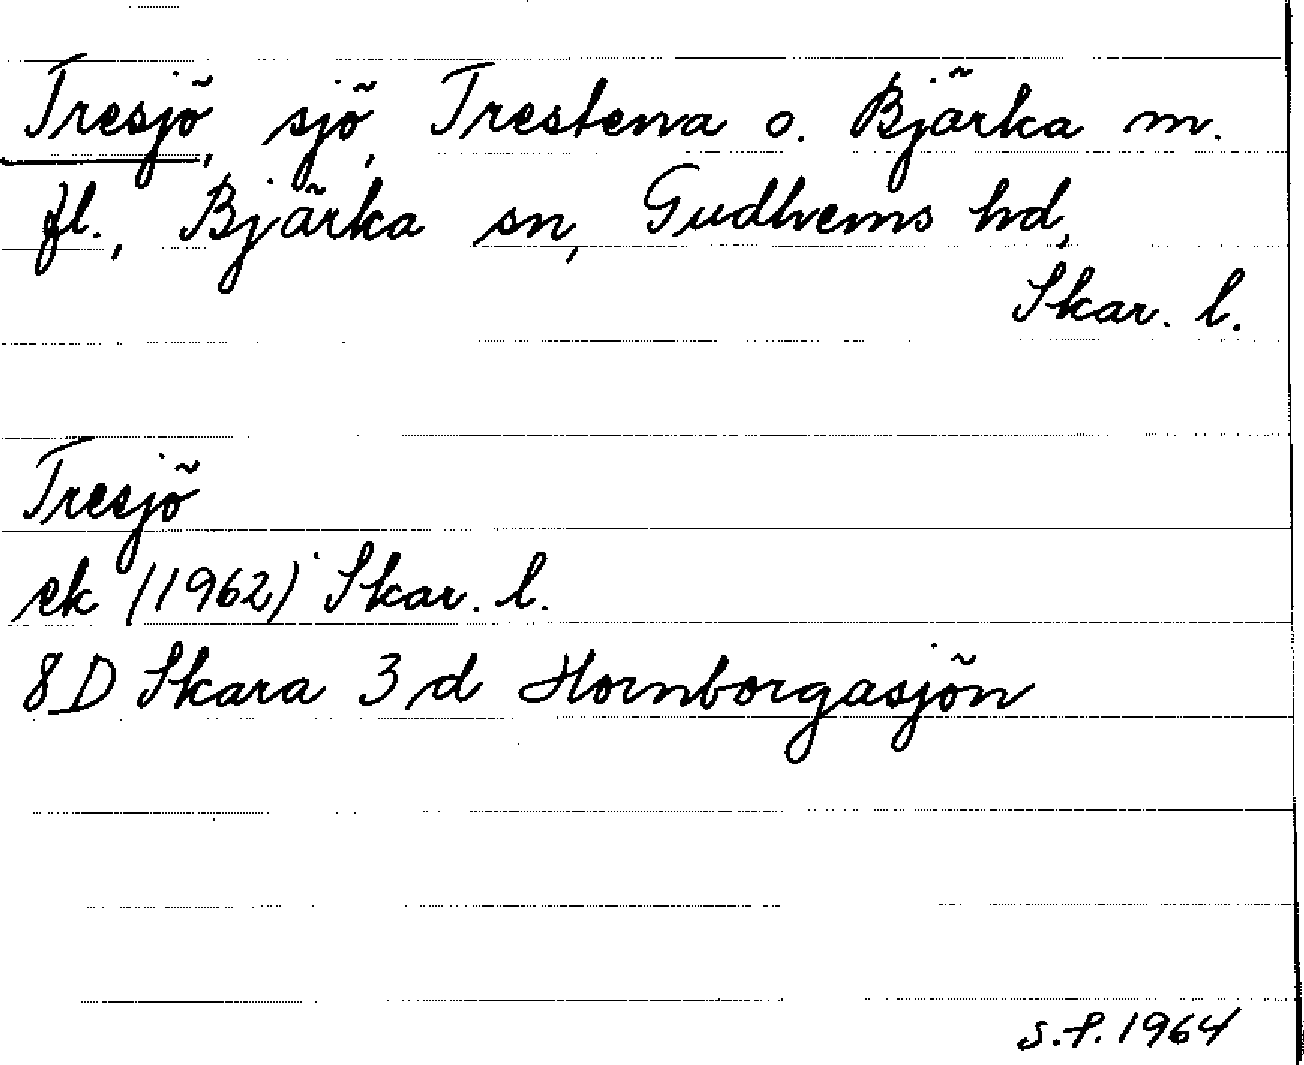 Tresjö, sjö, Trestena o. Bjärka m.
fl., Bjärka sn, Gudhems hd,
Skar. l.
Tresjö
ek (1962) Skar. l.
8D Skara 3 d Hornborgasjön
S.P. 1964